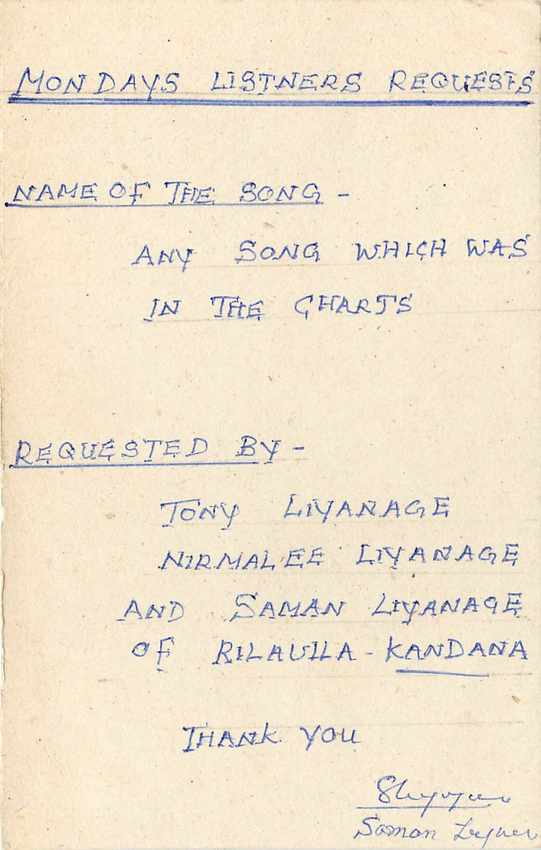 MONDAYS LISTNERS REQUESTS
NAME OF THE SONG -
ANY SONG WHICH WAS
IN THE CHARTS
REQUESTED BY -
TONY LIYANAGE
NIRMALEE LIYANAGE
AND SAMAN LIYANAGE
OF RILAULLA - KANDANA
THANK YOU
Saman